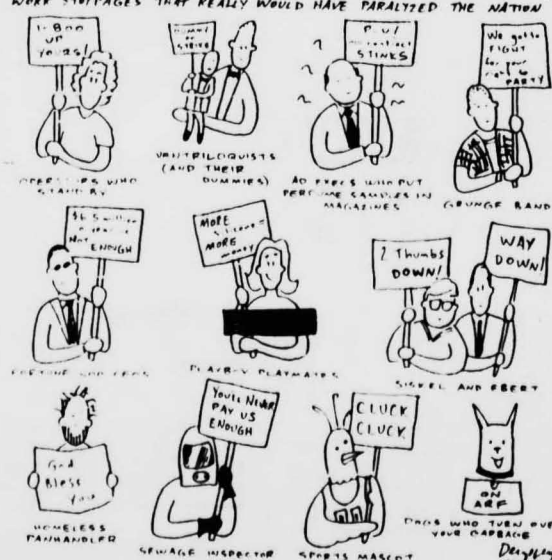 WORK STOPPAGES THAT REALLY WOULD HAVE PARALYZED THE NATION
1-800
UP
YOURS!
OPERATORS WHO
STAND BY
DUMMY
ON
STRIKE
VANTRILOQUISTS
(AND THEIR
DUMMIES)
P.U!
contract
STINKS
AD EXECS WHO PUT
PERFUME SAMPLES IN
MAGAZINES
We gotta
FIGHT
for your
right to
PARTY
GRUNGE BAND
$6.5 million
NOT
ENOUGH
FORTUNE 500 CEOS
MORE
silicone =
MORE
money
PLAYBOY PLAYMATES
2 Thumbs
DOWN!
WAY
DOWN!
SISKEL AND EBERT
God
Bless
You
HOMELESS
PANHANDLER
YOU'LL NEVER
PAY US
ENOUGH
SEWAGE INSPECTOR
CLUCK
CLUCK
SPORTS MASCOT
ON
ARF
DOGS WHO TURN OVER
YOUR GARBAGE